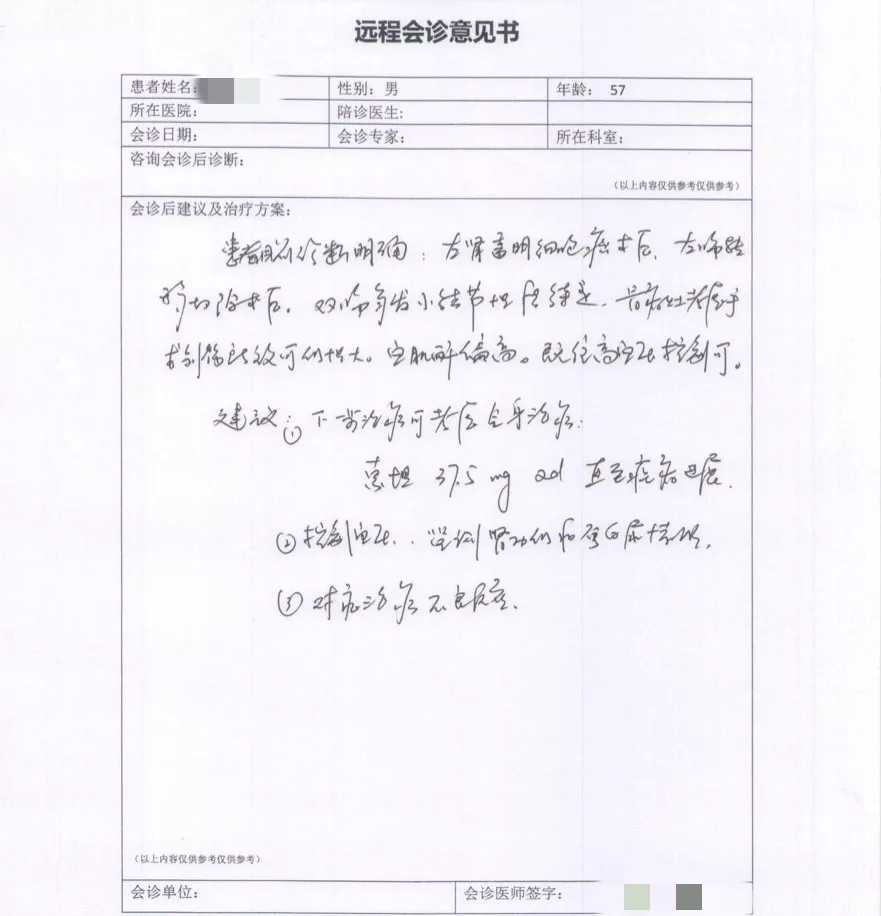 远程会诊意见书
患者姓名: 性别: 男 年龄: 57
所在医院: 陪诊医生:
会诊日期: 会诊专家: 所在科室:
咨询会诊后诊断:
(以上内容仅供参考仅供参考)
会诊后建议及治疗方案:
患者目前诊断明确: 左肾透明细胞癌术后, 左肺转
移切除术后, 双肺多发小结节
可切增大。血肌酐偏高。既往高血压控制可。
建议: ① 下一步治疗可考虑全身治疗:
索坦 37.5 mg qd 直至疾病进展.
② 控制血压, 监测肾功能和蛋白尿情况.
③ 对症治疗不良反应.
(以上内容仅供参考仅供参考)
会诊单位: 会诊医师签字: